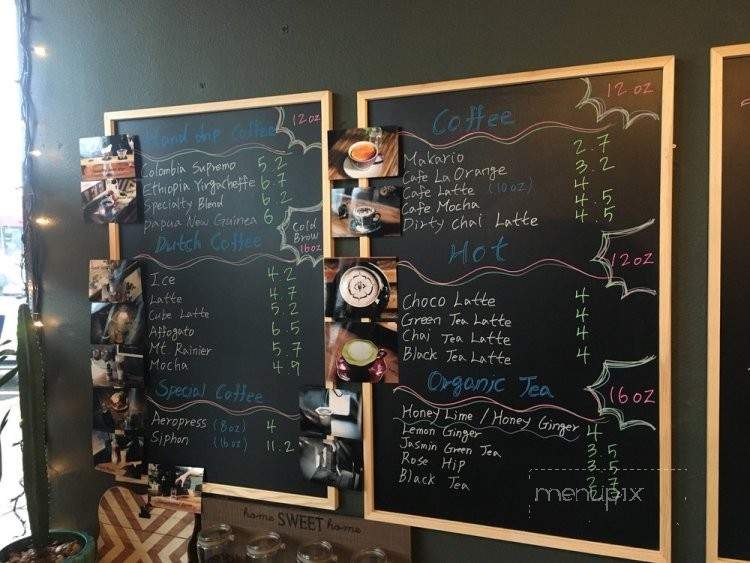 Hand drip Coffee
12oz
Colombia Supremo 5.2
Ethiopia Yirgacheffe 6.7
Specialty Blend 6.2
Papua New Guinea 6
Dutch Coffee
Cold Brow 16oz
Ice 4.2
Latte 4.7
Cube Latte 5.2
Affogato 6.5
Mt. Rainier 5.7
Mocha 4.9
Special Coffee
Aeropress (8oz) 4
Siphon (16oz) 11.2
Coffee
12oz
Makario 2.7
Cafe La Orange 3.2
Cafe Latte (10oz) 4
Cafe Mocha 4.5
Dirty Chai Latte 4.5
Hot
12oz
Choco Latte 4
Green Tea Latte 4
Chai Tea Latte 4
Black Tea Latte 4
Organic Tea
16oz
Honey Lime / Honey Ginger 4
Lemon Ginger 3.5
Jasmin Green Tea 3.5
Rose Hip
Black Tea
home SWEET home
menupix